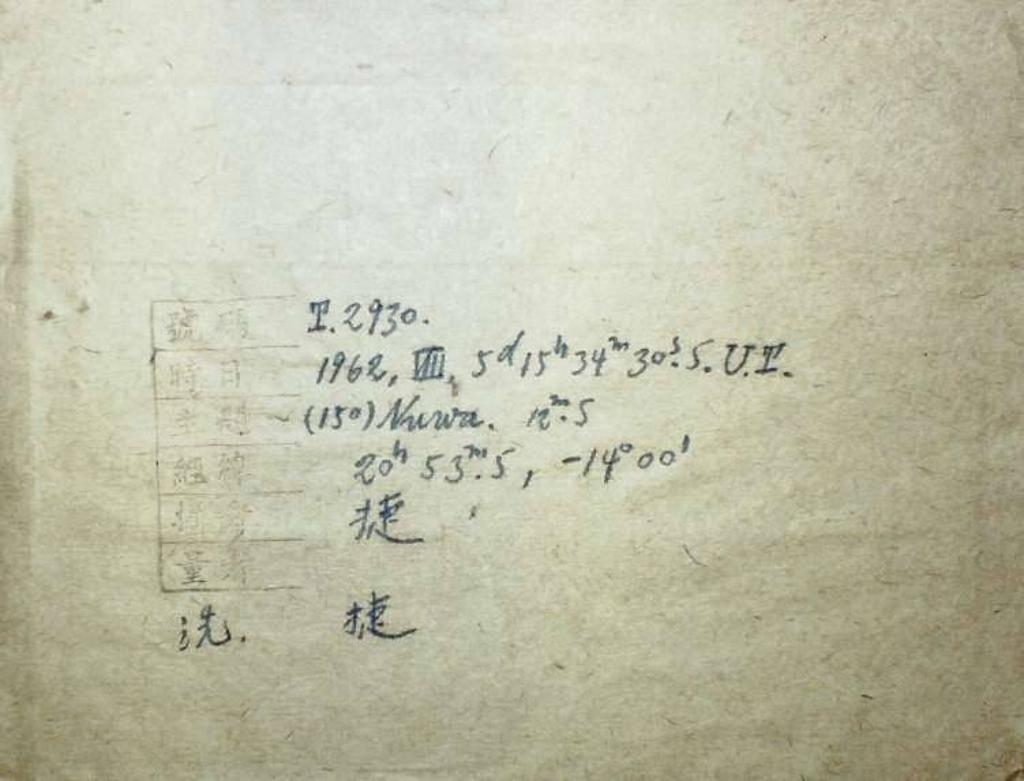 號碼 T.2930.
時日 1962, VIII, 5ᵈ15ʰ34ᵐ30ˢ.5. U.T.
主題 (150) Nuwa. 12ᵐ.5
經緯 20ʰ 53ᵐ.5, -14°00'
捷
量
洗. 捷